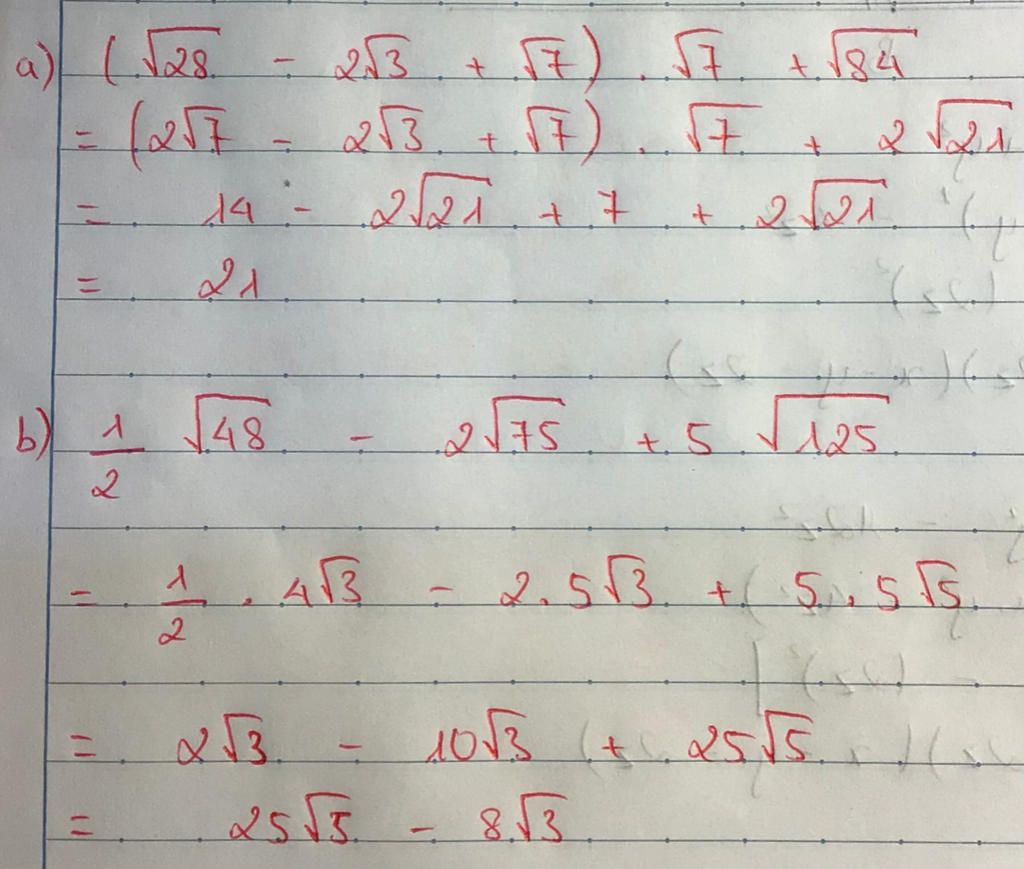 a) (√28 - 2√3 + √7) . √7 + √84
= (2√7 - 2√3 + √7) . √7 + 2√21
= 14 - 2√21 + 7 + 2√21
= 21
b) 1/2 √48 - 2√75 + 5√125
= 1/2 . 4√3 - 2.5√3 + 5.5√5
= 2√3 - 10√3 + 25√5
= 25√5 - 8√3